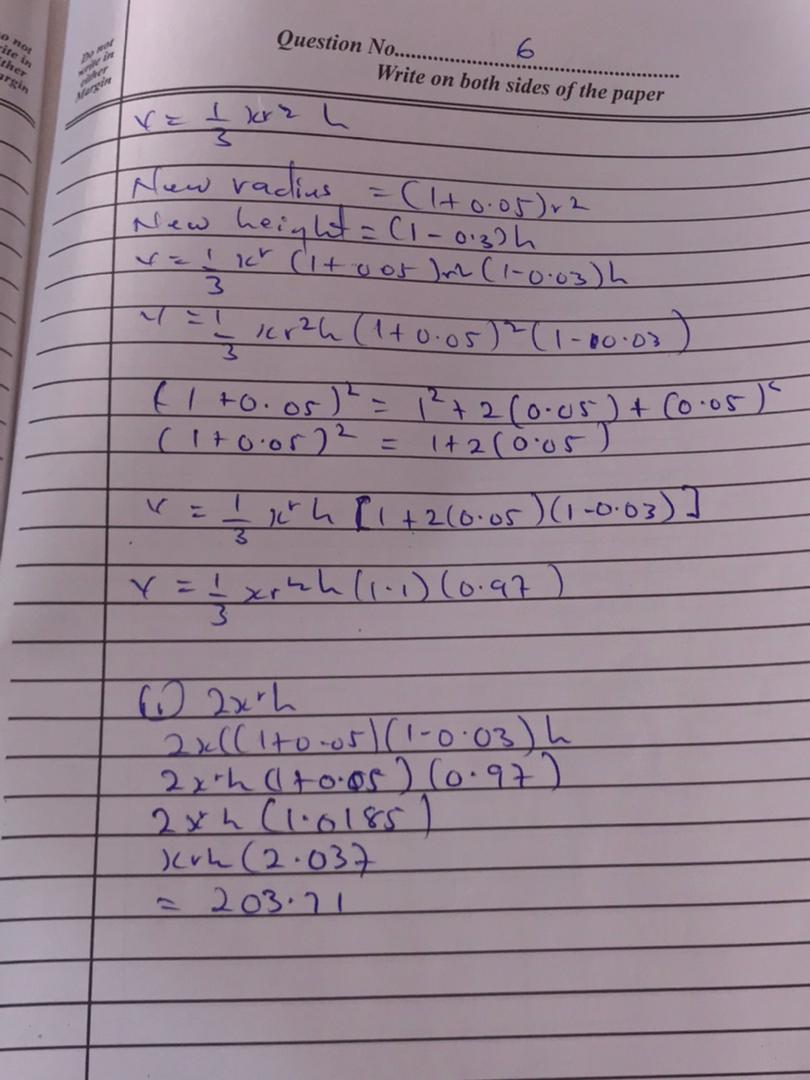 Do not
write in
either
Margin
Question No. 6
Write on both sides of the paper
V = 1/3 πr² h
New radius = (1+0.05)r²
New height = (1-0.3)h
V = 1/3 πr (1+0.05)r²(1-0.03)h
V = 1/3 πr²h (1+0.05)²(1-0.03)
(1+0.05)² = 1²+2(0.05)+(0.05)²
(1+0.05)² = 1+2(0.05)
V = 1/3 πr h [1+2(0.05)(1-0.03)]
V = 1/3 πr²h (1.1)(0.97)
(i) 2πrh
2π((1+0.05)(1-0.03)h
2πrh (1+0.05)(0.97)
2πh (1.0185)
πrh (2.037
= 203.71